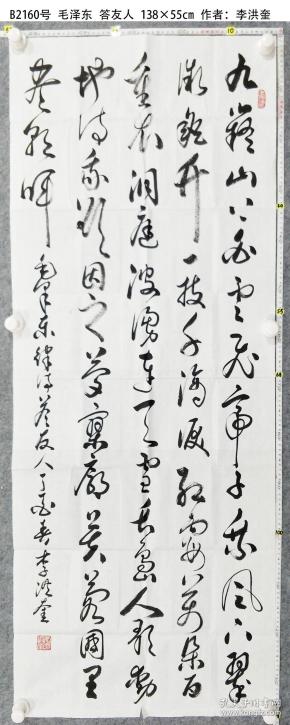 B2160号 毛泽东 答友人 138×55cm 作者：李洪奎
九嶷山上白云飞帝子乘风下翠
微斑竹一枝千滴泪红霞万朵百
重衣洞庭波涌连天雪长岛人歌动
地诗我欲因之梦寥廓芙蓉国里
尽朝晖
毛泽东律诗答友人丁酉春李洪奎